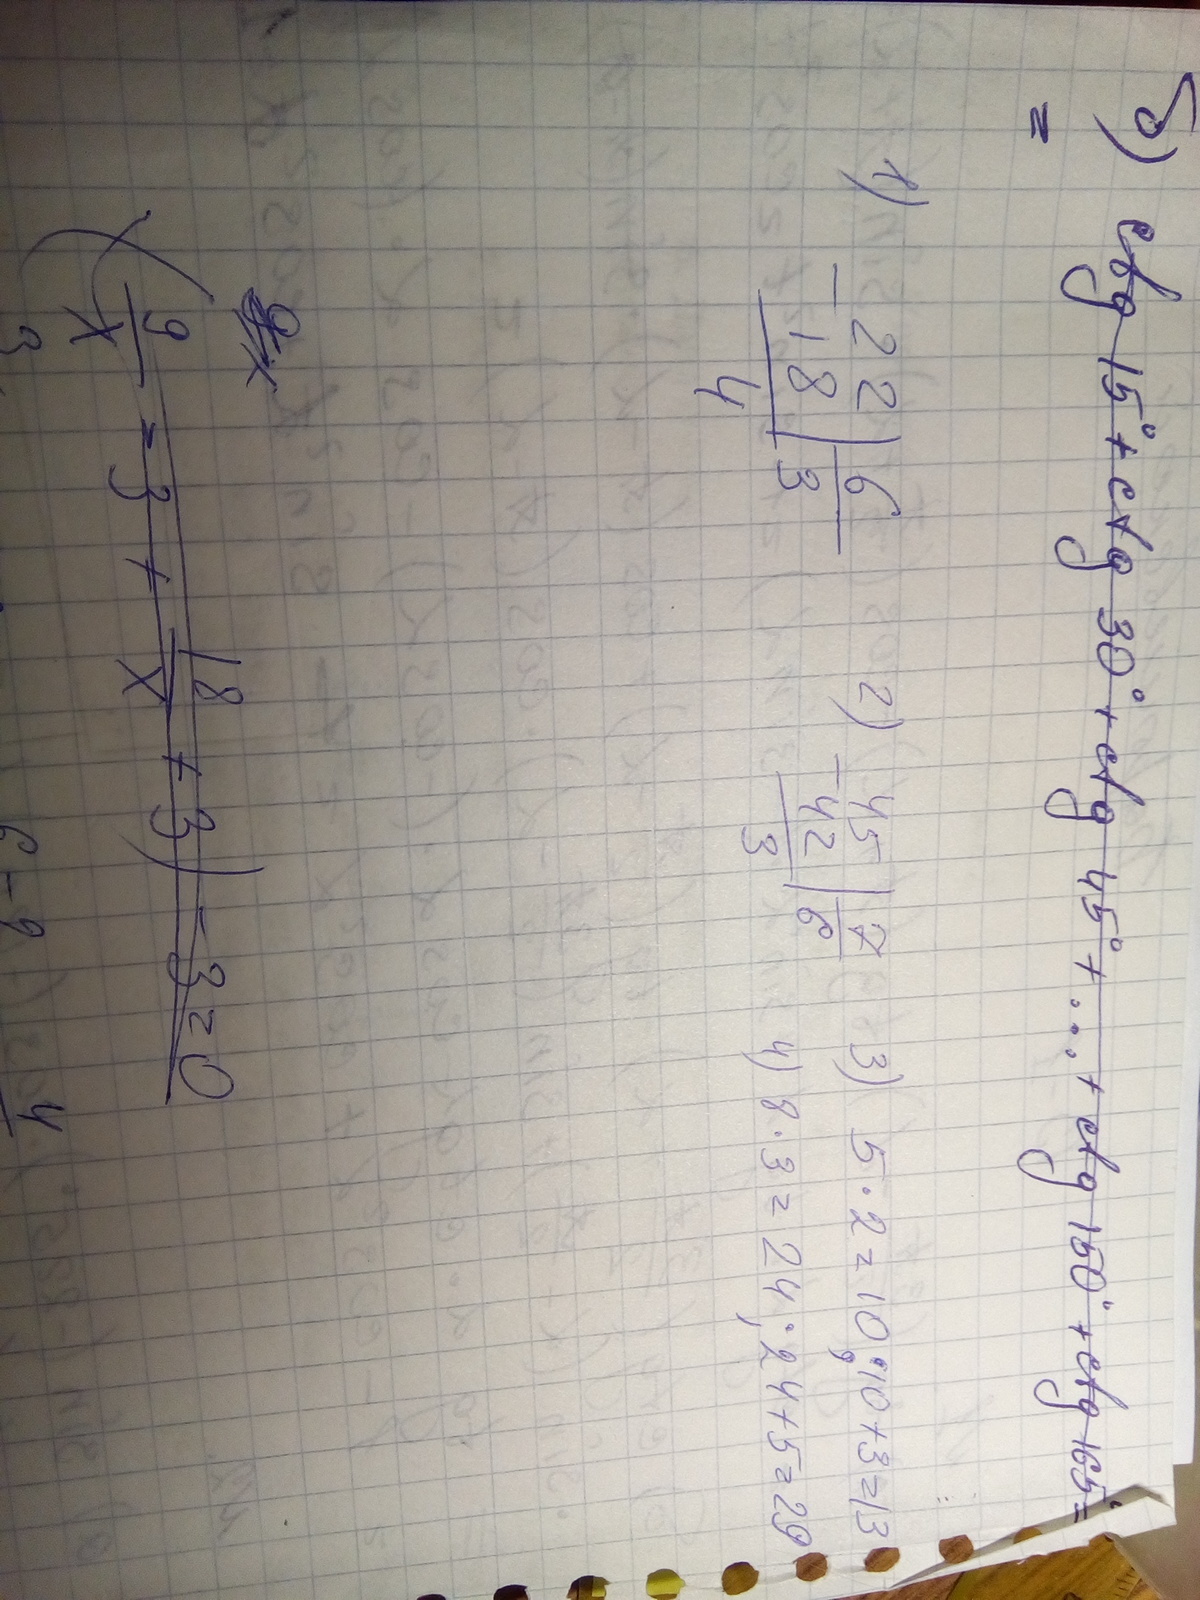 б) ctg 15° + ctg 30° + ctg 45° + ... + ctg 150° + ctg 165° =
=
1) 22 | 6
- 18 | 3
4
2) 45 | 7
- 42 | 6
3
3) 5 · 2 = 10; 10 + 3 = 13
4) 8 · 3 = 24; 24 + 5 = 29
9/x = 3 + 18/x + 3) - 3 = 0
3
6 - 9
4